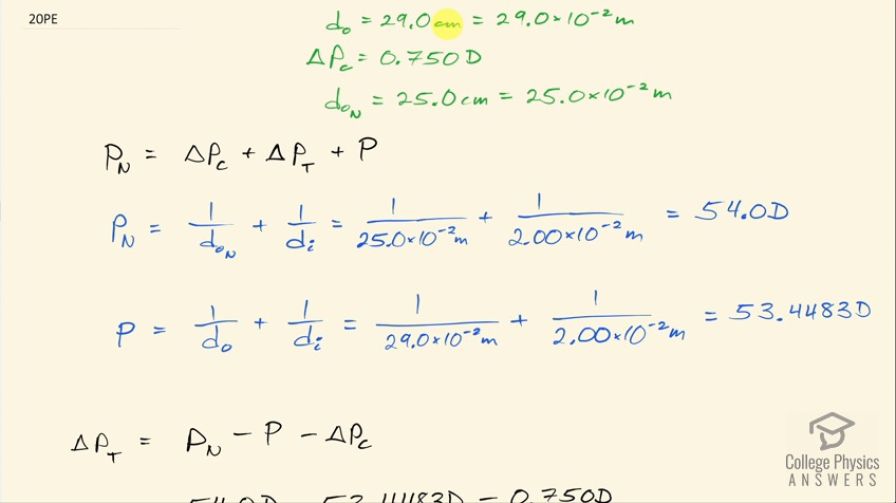 20PE
d₀ = 29.0 cm = 29.0×10⁻² m
ΔP_c = 0.750 D
d₀_N = 25.0 cm = 25.0×10⁻² m
P_N = ΔP_c + ΔP_T + P
P_N = 1/d₀_N + 1/d_i = 1/25.0×10⁻² m + 1/2.00×10⁻² m = 54.0 D
P = 1/d₀ + 1/d_i = 1/29.0×10⁻² m + 1/2.00×10⁻² m = 53.4483 D
ΔP_T = P_N − P − ΔP_c
54.0 D − 53.4483 D − 0.750 D
College Physics
ANSWERS